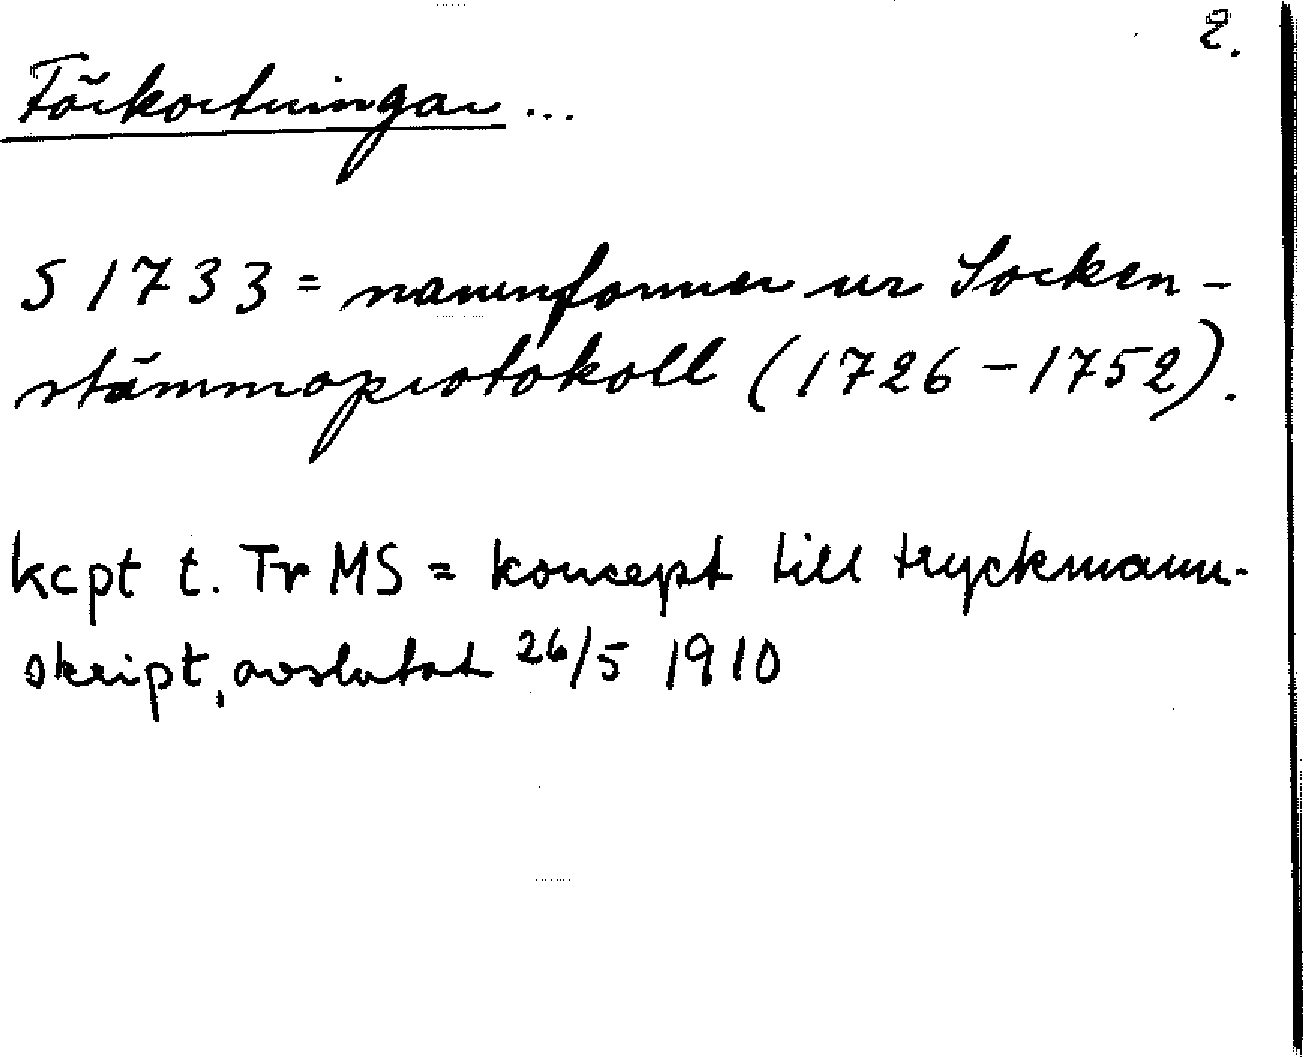 2.
Förkortningar...
S 1733 = namnformer ur Socken-
stämmoprotokoll (1726-1752).
kcpt t. Tr MS = koncept till tryckmanu-
skript, avslutat 26/5 1910